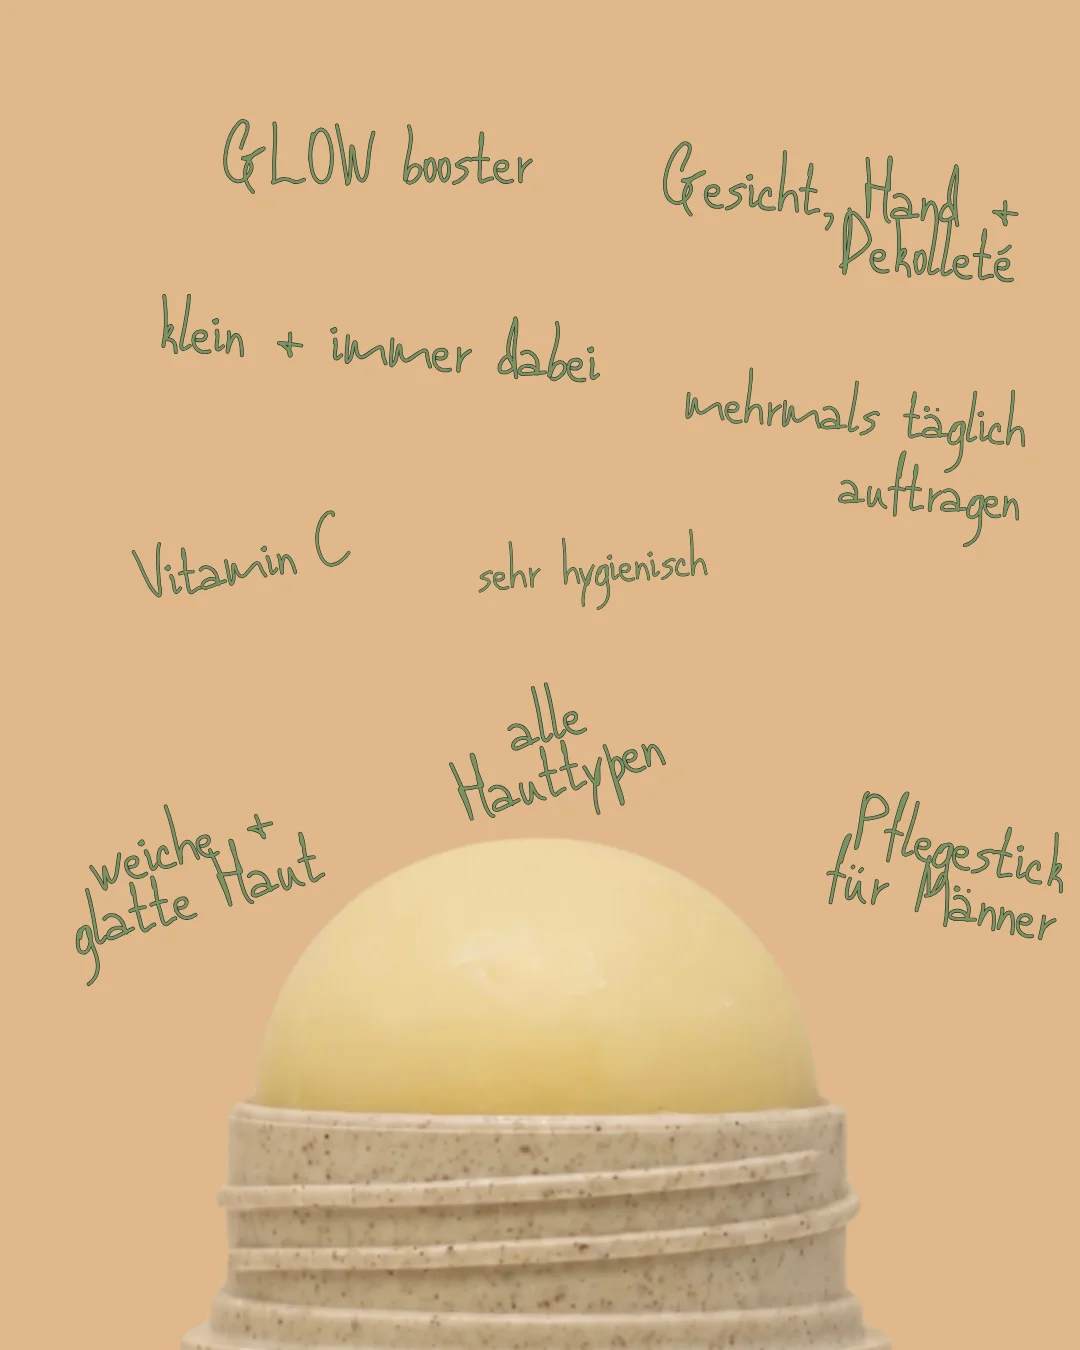 GLOW booster
Gesicht, Hand +
Dekolleté
klein + immer dabei
mehrmals täglich
auftragen
Vitamin C
sehr hygienisch
alle
Hauttypen
weiche +
glatte Haut
Pflegestick
für Männer